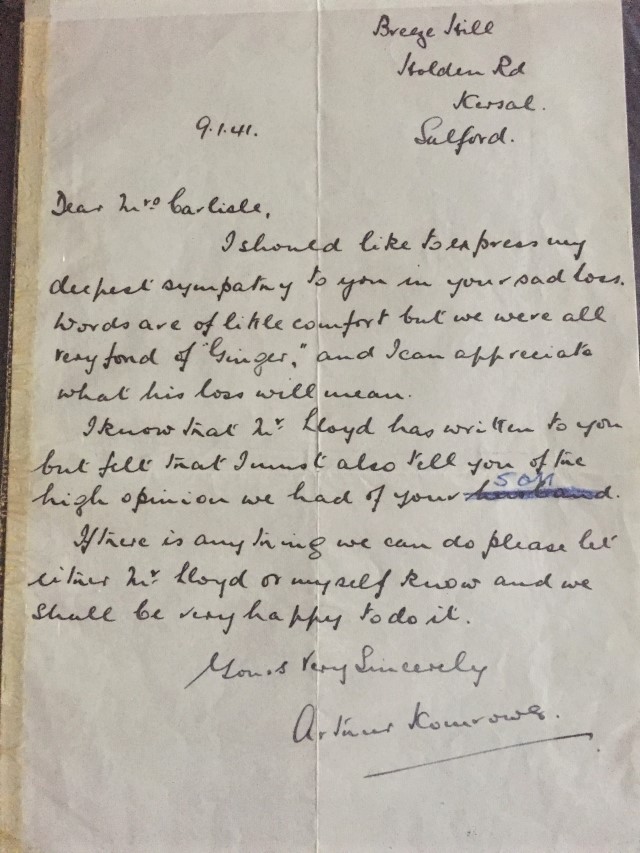 Breeze Hill
Holden Rd
Kersal.
Salford.
9.1.41.
Dear Mrs Carlisle,
I should like to express my
deepest sympathy to you in your sad loss.
Words are of little comfort but we were all
very fond of "Ginger," and I can appreciate
what his loss will mean.
I know that Mr. Lloyd has written to you
but felt that I must also tell you of the
son
high opinion we had of your husband.
If there is anything we can do please let
either Mr. Lloyd or myself know and we
shall be very happy to do it.
Yours Very Sincerely
Arthur